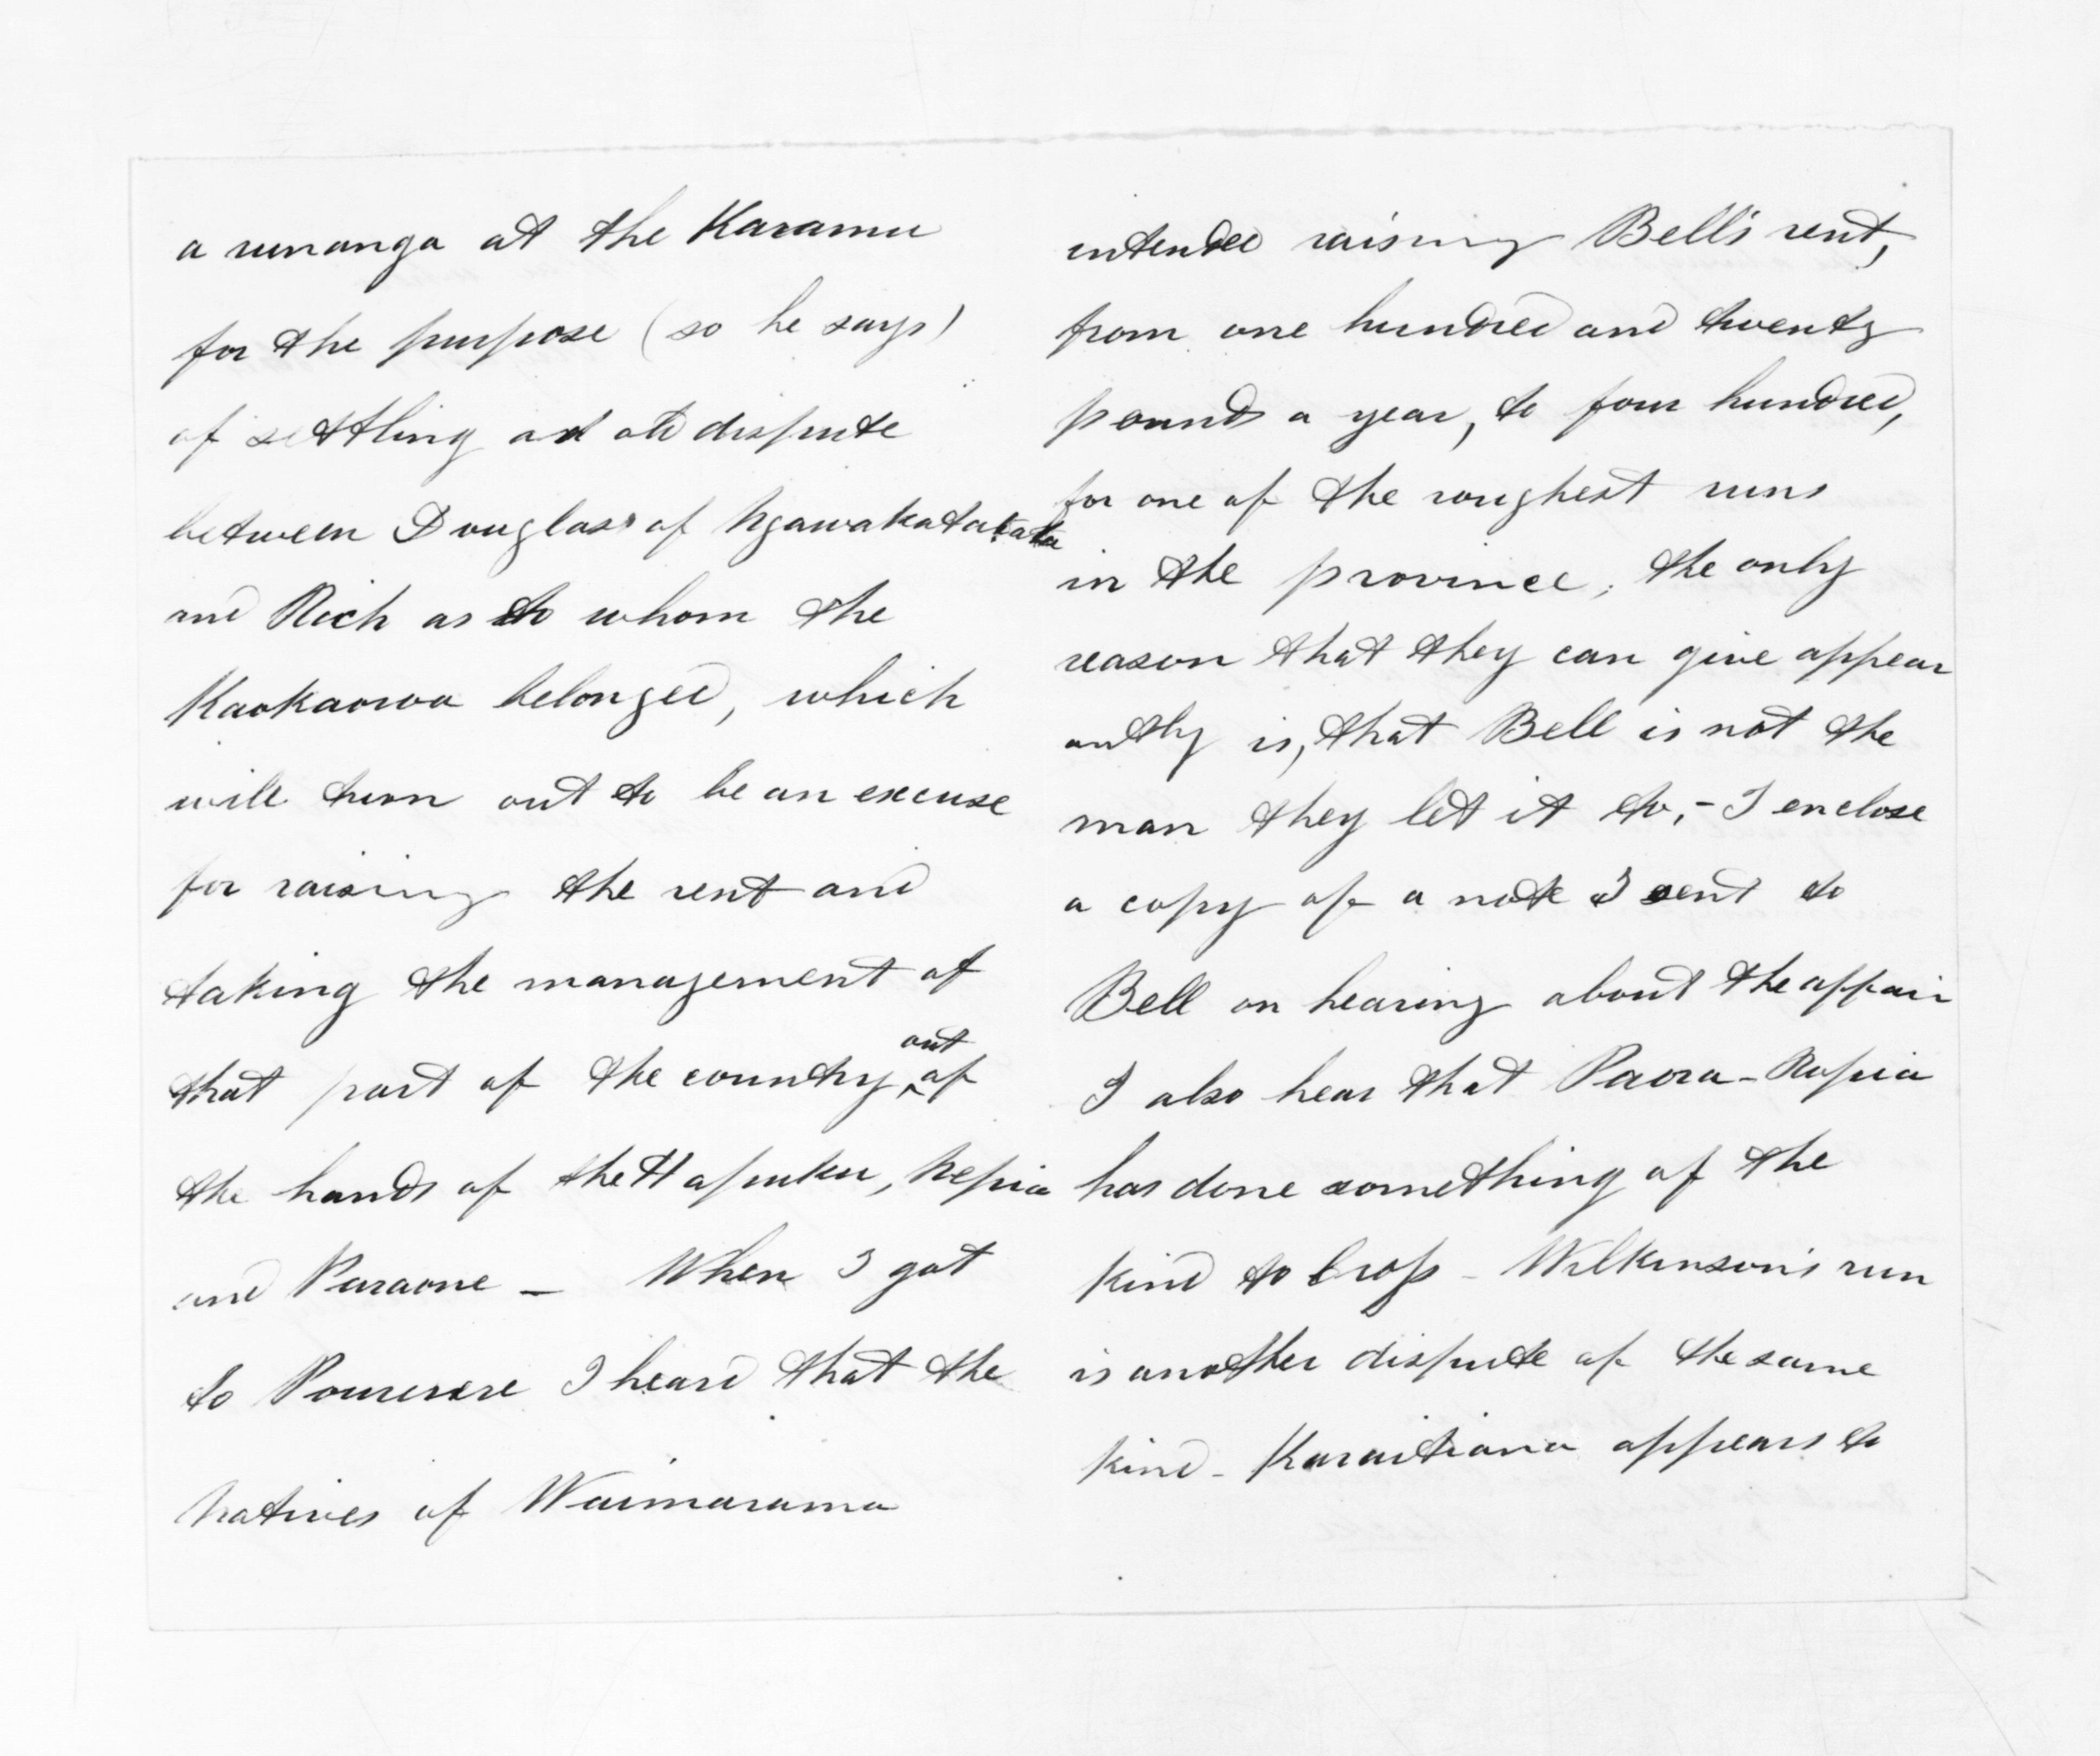 a runanga at the Karamu
for the purpose (so he says)
of settling an old dispute
between Douglass of Ngawakatatara
and Rich as to whom the
Kaokaoroa belonged, which
will turn out to be an excuse
for raising the rent and
taking the management of
that part of the country out of
the hands of the Hapuku, Nepia
and Paraone _ When I got
to Pourerere I heard that the
Natives of Waimarama
intended raising Bell's rent,
from one hundred and twenty
pounds a year, to four hundred,
for one of the roughest runs
in the province, the only
reason that they can give appear
antly is, that Bell is not the
man they let it to, - I enclose
a copy of a note I sent to
Bell on hearing about the affair
I also hear that Paora - Ropia
has done something of the
kind to - Wilkinson's run
is another dispute of the same
kind - Karaitiana appears to